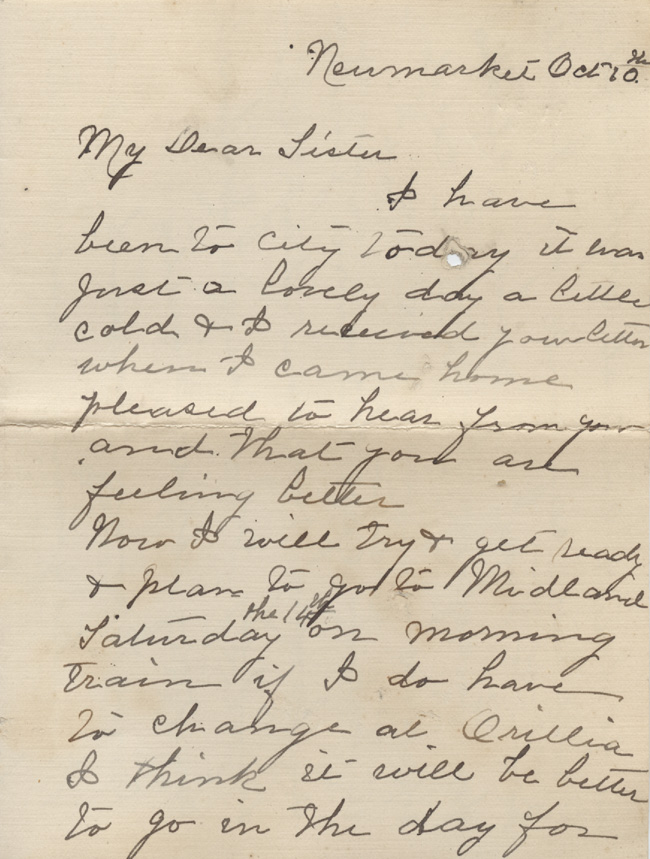 Newmarket Oct 10th
My Dear Sister
I have
been to city today it was
just a lovely day a little
cold & I received your letter
when I came home
pleased to hear from you
and that you are
feeling better
Now I will try & get ready
& plan to go to Midland
the 14th
Saturday on morning
train if I do have
to change at Orillia
I think it will be better
to go in the day for